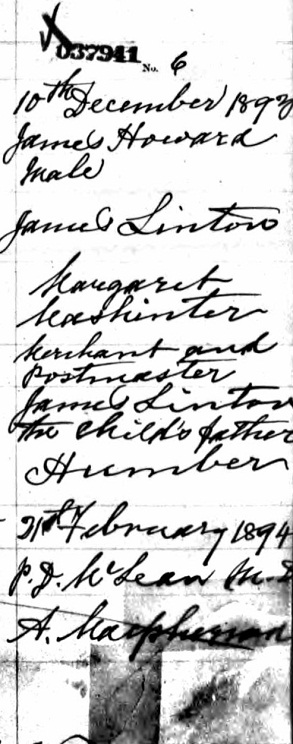 037941
No. 6
10th December 1893
James Howard
Male
James Linton
Margaret
Mashinter
Merchant and
Postmaster
James Linton
the child's father
Humber
21st February 1894
P.D. McLean M.D
A. Macpherson